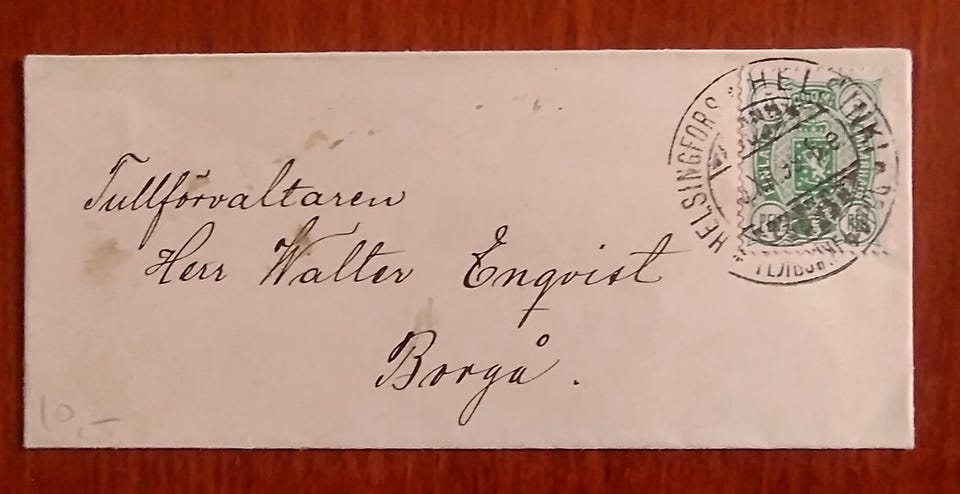 HELSINGFORS HELSINKI
Tullförvaltaren
Herr Walter Enqvist
Borgå.
10,-